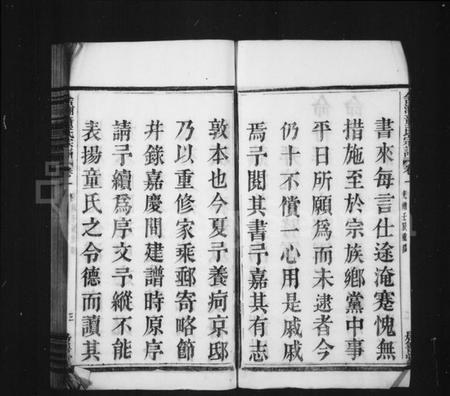 書來每言仕途淹蹇愧無
措施至於宗族鄉黨中事
平日所願為而未逮者今
仍十不償一心用是戚戚
焉予閱其書予嘉其有志
敦本也今夏予養疴京邸
乃以重修家乘郵寄略節
并錄嘉慶間建譜時原序
請予續為序文予縱不能
表揚童氏之令德而讀其